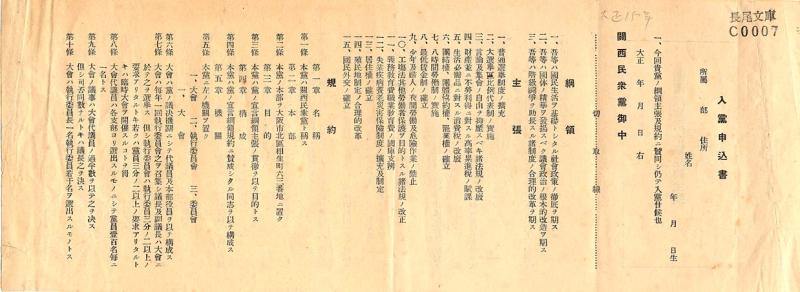 長尾文庫
C0007
大正15年
入黨申込書
一、今回貴黨ノ綱領主張及規約ニ贊同シ仍テ入黨仕候也
年 月 日生
所屬 部 住所
姓名
大正 年 月 日 右
關西民衆黨御中
切取線
綱領
一、吾等ハ國民生活ヲ基準トシタル社會政策ノ徹底ヲ期ス
二、吾等ハ國体ノ精華ヲ發揚スベク議會政治ノ根本的改造ヲ期ス
三、吾等ハ階級鬪爭ヲ助長スル諸制度ノ合理的改革ヲ期ス
主張
一、普通選擧制度ノ擴充
二、大選擧區比例代表制ノ實施
三、言論及集會ノ自由ヲ拘壓スベキ諸法規ノ改廢
四、財產並ニ不勞利得ニ對スル高率累進稅ノ賦課
五、生活必需品ニ對スル消費稅ノ改廢
六、團結權、團體協約權、罷業權ノ確立
七、八時間勞働制ノ實施
八、最低賃金制ノ確立
九、少年及婦人ノ夜間勞働及危險作業ノ禁止
一〇、工場法其他勞働者保護ヲ目的トスル諸法規ノ改正
一一、義務敎育費職業敎育費ノ國庫支辨
一二、失業疾病養老災害保險制度ノ擴充及制定
一三、居住權ノ確立
一四、殖民地制定ノ合理的改革
一五、國民外交ノ確立
規約
第一章 名稱
第一條 本黨ハ關西民衆黨ト稱ス
第二章 本部
第二條 本黨ハ本部ヲ大阪市北區相生町六三番地ニ置ク
第三章 目的
第三條 本黨ハ宣言綱領主張ノ貫徹ヲ以テ目的トス
第四章 構成
第四條 本黨ハ宣言綱領規約ニ贊成シタル同志ヲ以テ構成ス
第五章 機關
第五條 本黨ハ左ノ機關ヲ置ク
一、大會 二、執行委員會 三、委員會
第六條 大會ハ黨ノ決議機關ニシテ代議員及本部役員ヲ以テ構成ス
第七條 大會ハ每年一回執行委員會之ヲ召集シ議長及副議長ハ大會ニ
於テ之ヲ選擧ス 但シ執行委員會ハ執行委員三分ノ二以上ノ
要求アリタルトキ若クハ黨員三分ノ二以上ノ要求アリタルト
キハ臨時大會ヲ開催スルコトヲ得
第八條 大會代議員ハ各支部ヨリ選出スルモノニシテ黨員壹百名每ニ
一名トス
第九條 大會議事ハ大會代議員ノ過半數ヲ以テ之ヲ決ス
但シ可否同數ナルトキハ議長之ヲ決ス
第十條 大會ハ執行委員長一名執行委員若干名ヲ選出スルモノトス